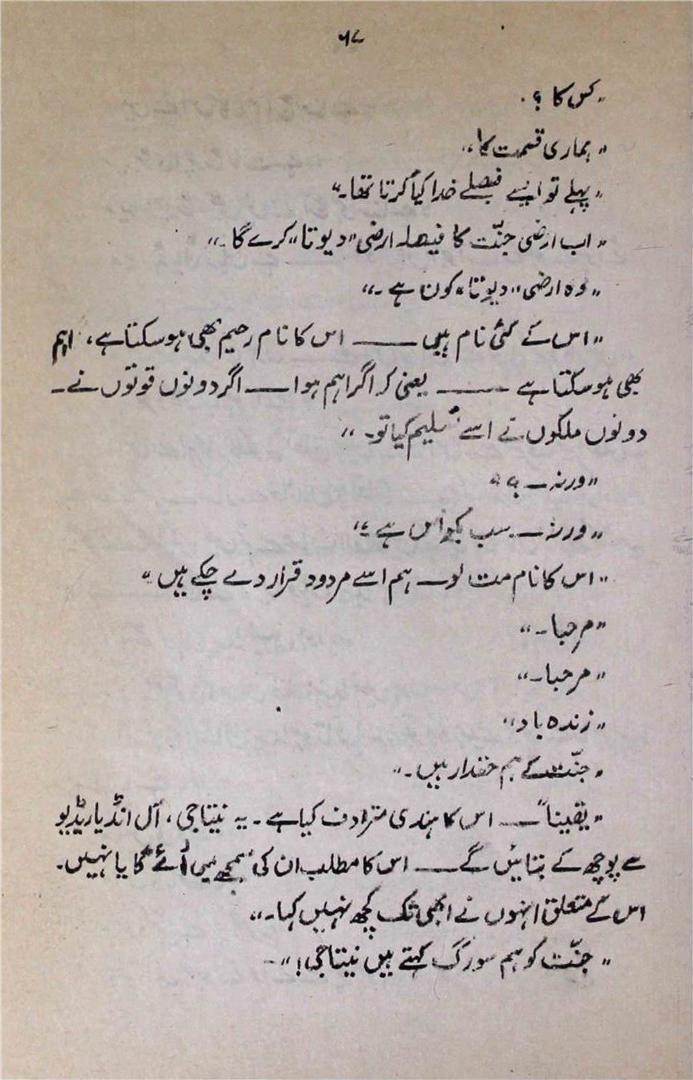 ۶۷
"کس کا ؟"
"ہماری قسمت کا"
"پہلے تو ایسے فیصلے خدا کیا کرتا تھا۔"
"اب ارضی جنّت کا فیصلہ ارضی "دیوتا" کرے گا۔"
"وہ ارضی "دیوتا" کون ہے۔"
"اس کے کئی نام ہیں —— اس کا نام رحیم بھی ہو سکتا ہے، اہم
بھی ہو سکتا ہے —— یعنی کہ اگر اہم ہوا — اگر دونوں قوتوں نے۔
دونوں ملکوں نے اسے تسلیم کیا تو۔"
"ورنہ — ؟"
"ورنہ — سب بکواس ہے"
"اس کا نام مت لو — ہم اسے مردود قرار دے چکے ہیں"
"مرحبا۔"
"مرحبا۔"
"زندہ باد"
"جنّت کے ہم حقدار ہیں۔"
"یقیناً — اس کا ہندی مترادف کیا ہے۔ یہ نیتاجی، آل انڈیا ریڈیو
سے پوچھ کے بتائیں گے — اس کا مطلب ان کی سمجھ میں آئے گا یا نہیں۔
اس کے متعلق انہوں نے ابھی تک کچھ نہیں کہا۔"
"جنّت کو ہم سورگ کہتے ہیں نیتاجی!"۔